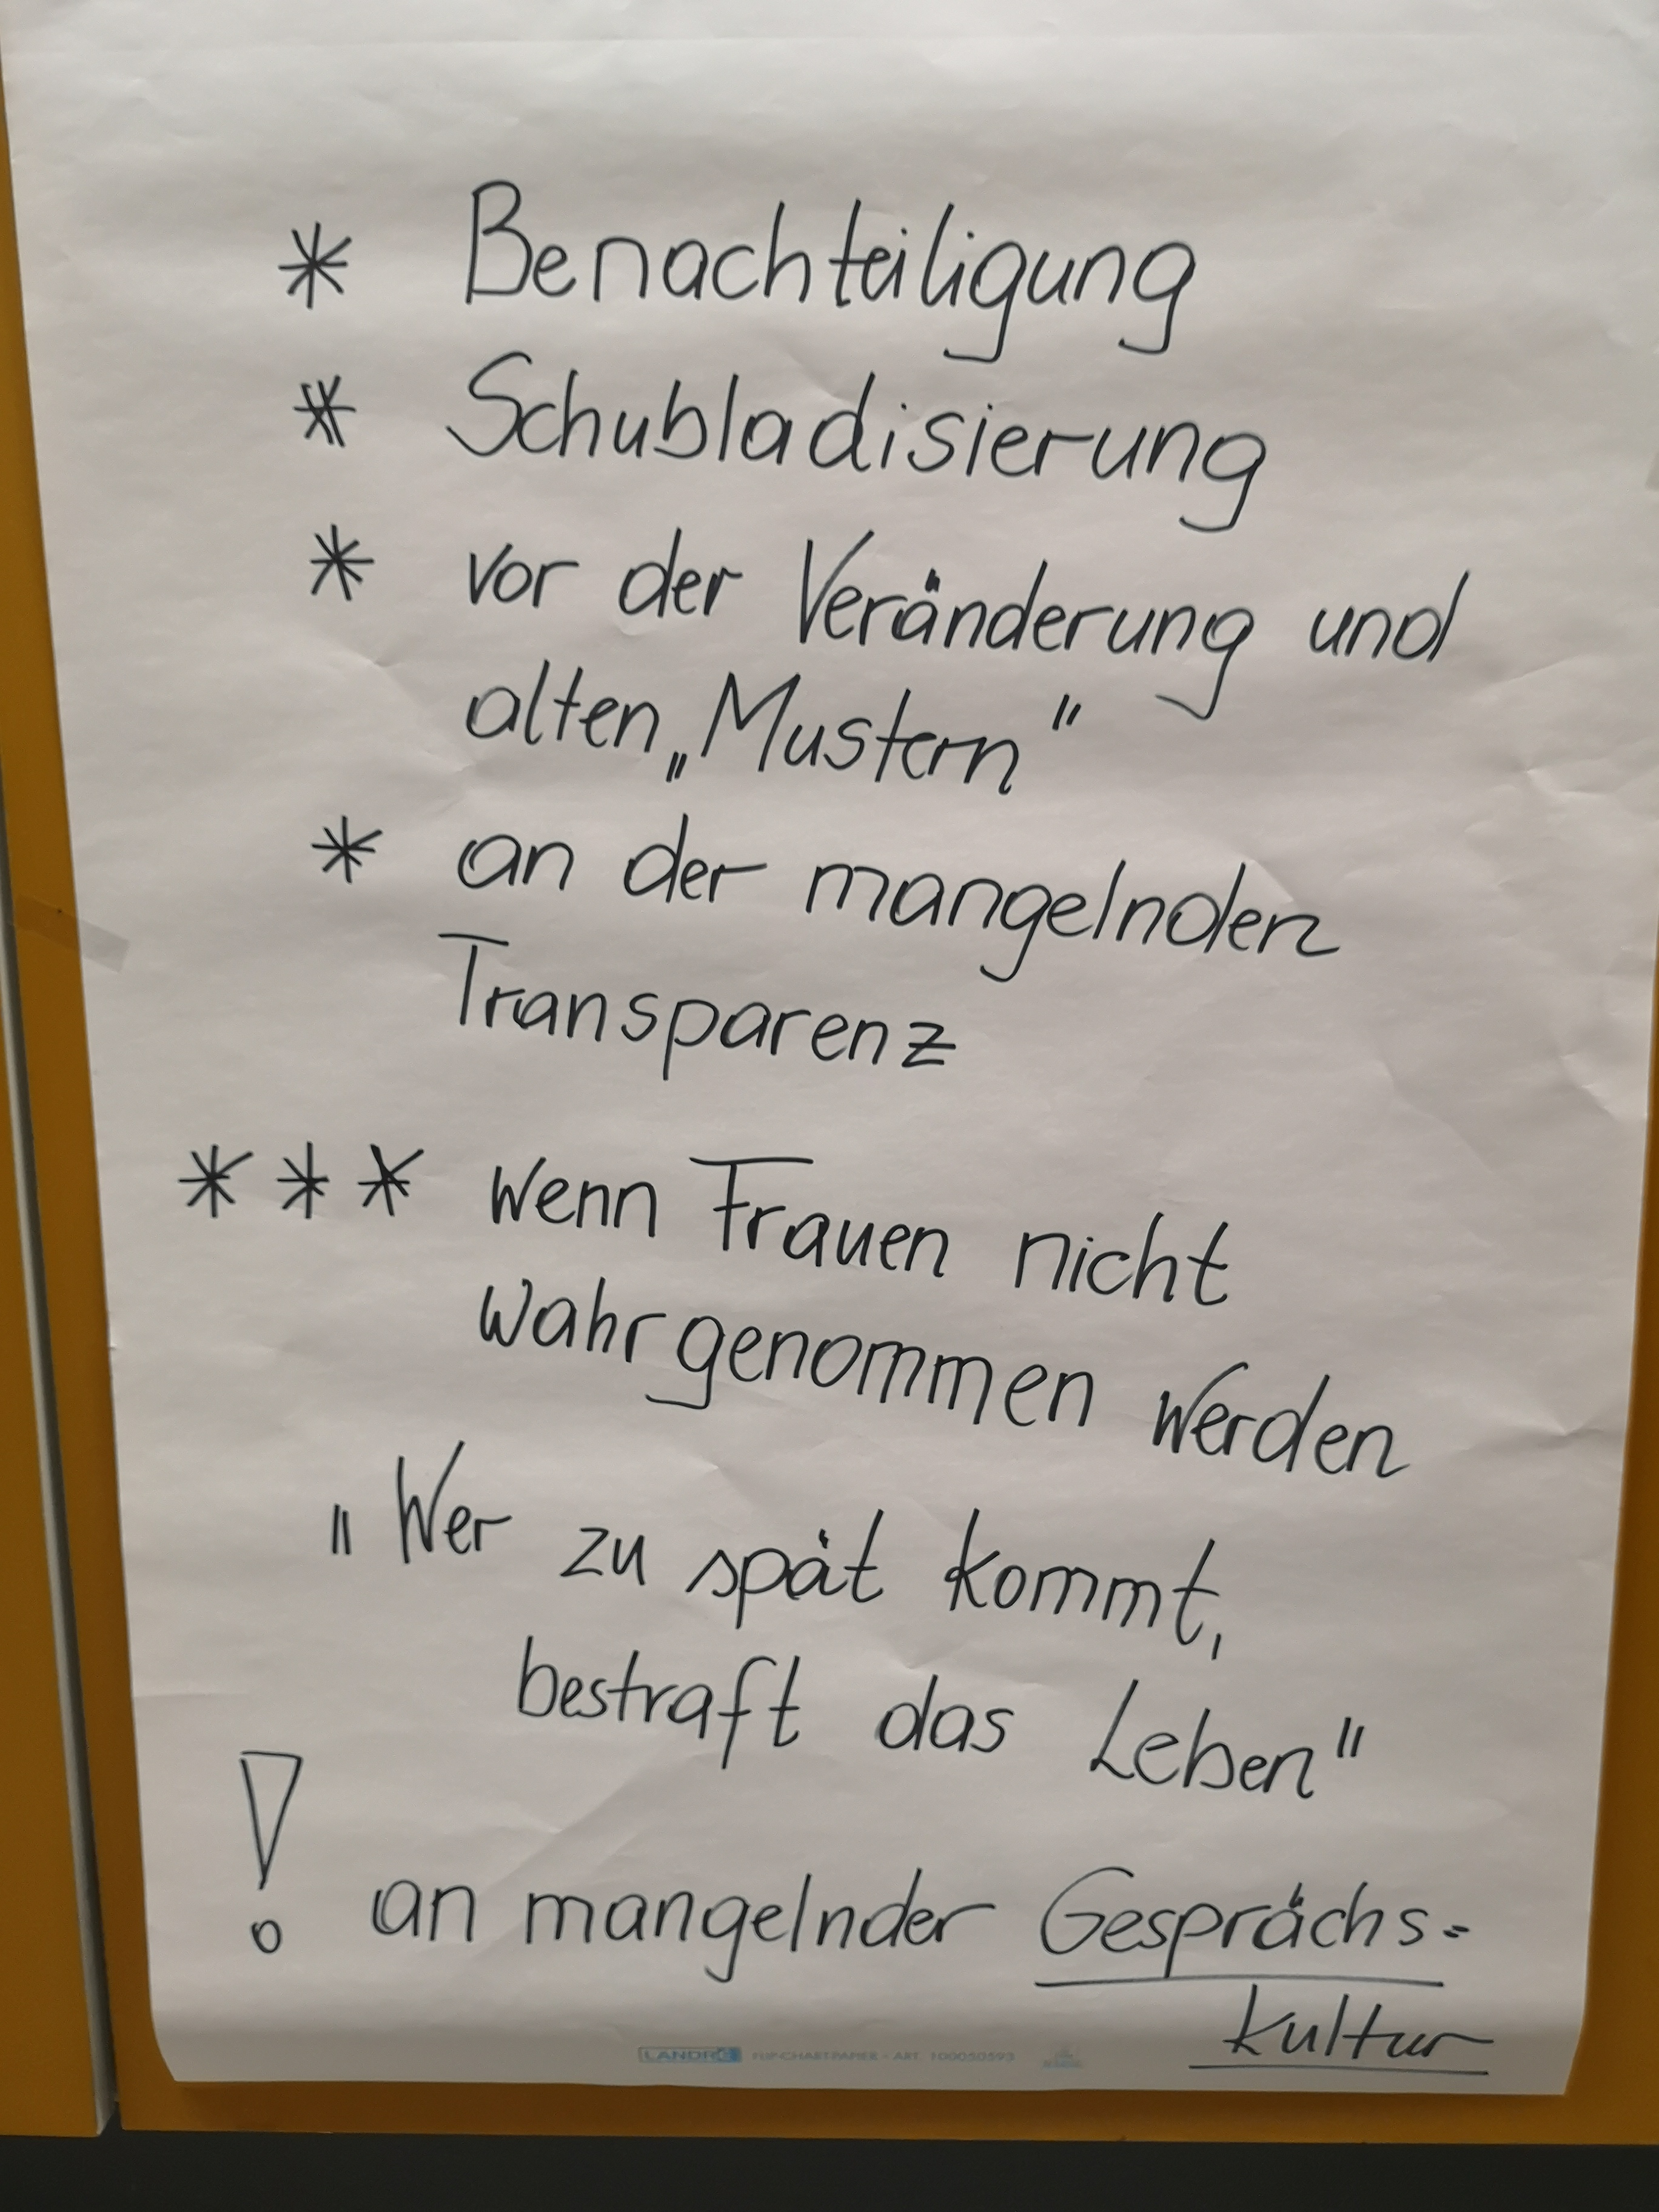 * Benachteiligung
* Schubladisierung
* vor der Veränderung und
alten „Mustern"
* an der mangelnden
Transparenz
*** wenn Frauen nicht
wahrgenommen werden
"Wer zu spät kommt,
bestraft das Leben"
! an mangelnder Gesprächs=
kultur
LANDRÉ FLIP-CHART-PAPIER - ART. 100050593